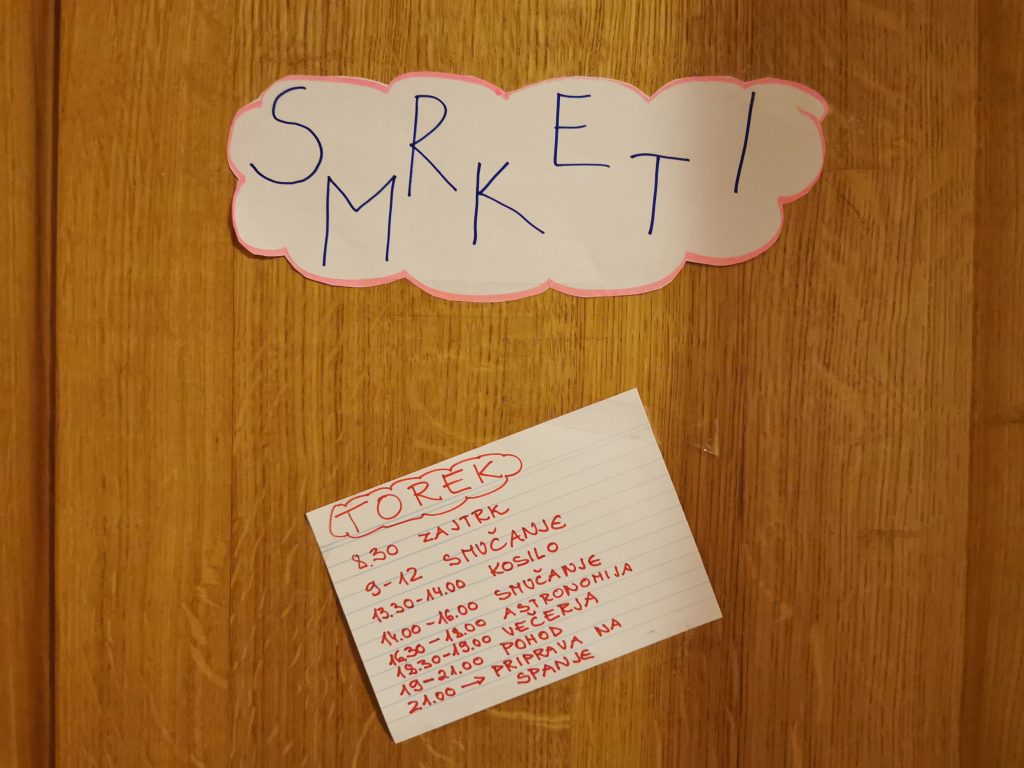 SMRKETI
TOREK
8.30 ZAJTRK
9-12 SMUČANJE
13.30-14.00 KOSILO
14.00-16.00 SMUČANJE
16.30-18.00 ASTRONOMIJA
18.30-19.00 VEČERJA
19-21.00 POHOD
21.00 → PRIPRAVA NA
SPANJE